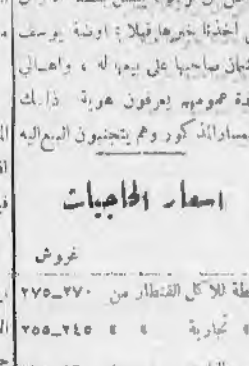 أخذنا خبرها قبلا : اوضة يوسف
صاحبها على بيعها له ، واهالي
عمومهم يعرفون هوية ذلك
المذكور وهم يتجنبون البيع اليه
اسعار الحاجيات
غروش
للاكل القنطار من ٢٧٠ـ٢٧٥
تجارية » » ٢٤٥ـ٢٥٥